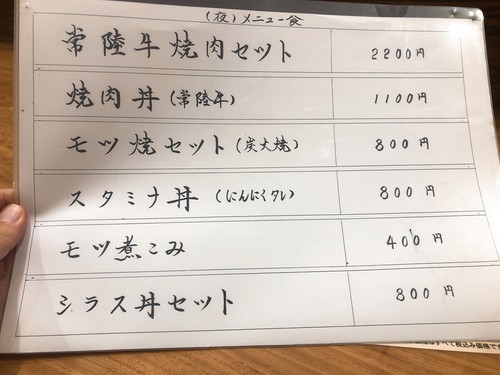 (夜)メニュー食
常陸牛焼肉セット 2200円
焼肉丼(常陸牛) 1100円
モツ焼セット(炭火焼) 800円
スタミナ丼 (にんにくタレ) 800円
モツ煮こみ 400円
シラス丼セット 800円
すべて税込み価格で